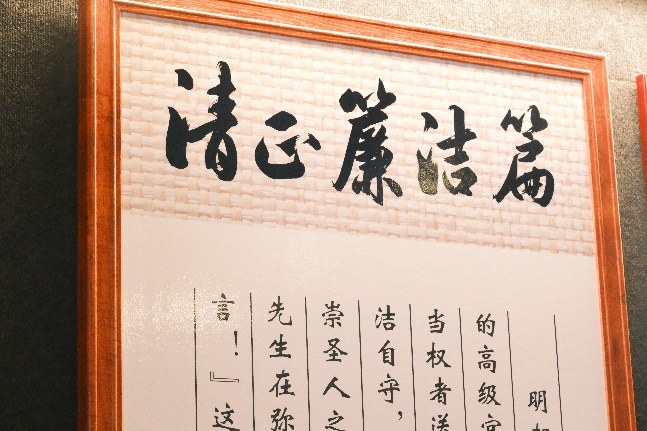 清正簾洁篇
明
的高级官
当权者送
洁自守，
崇圣人之
先生在弥
言！』这